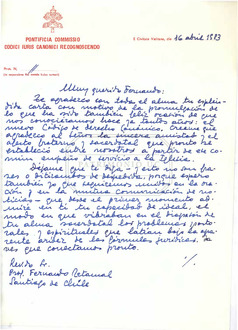 PONTIFICIA COMMISSIO
CODICI IURIS CANONICI RECOGNOSCENDO
E Civitate Vaticana, die 16 abril 1983
Prot. N.
Muy querido Fernando:
Te agradezco con toda el alma tu esplén-
dida carta con motivo de la promulgación de
lo que ha sido también feliz ocasión de que
nos conociéramos hace ya tantos años: el
nuevo Código de derecho Canónico. Creeme que
agradezco al Señor la sincera amistad y el
afecto fraterno y sacerdotal que pronto se
estableció entre nosotros a partir de ese co-
mún empeño de servicio a la Iglesia.
Déjame que te diga - y esto no son fra-
ses o ditirambos de despedida, porque espero
también yo que sigamos unidos en la ora-
ción y en la mutua comunicación de no-
ticias - que desde el primer momento ad-
miré en ti tu capacidad de ideal, el
modo en que vibraban en el
tu alma sacerdotal los problemas pasto-
rales y espirituales que latían bajo la apa-
rente aridez de las fórmulas jurídicas. Ya
ves que conectamos pronto.
Revdo. Sr.
Prof. Fernando Retamal
Santiago de Chile